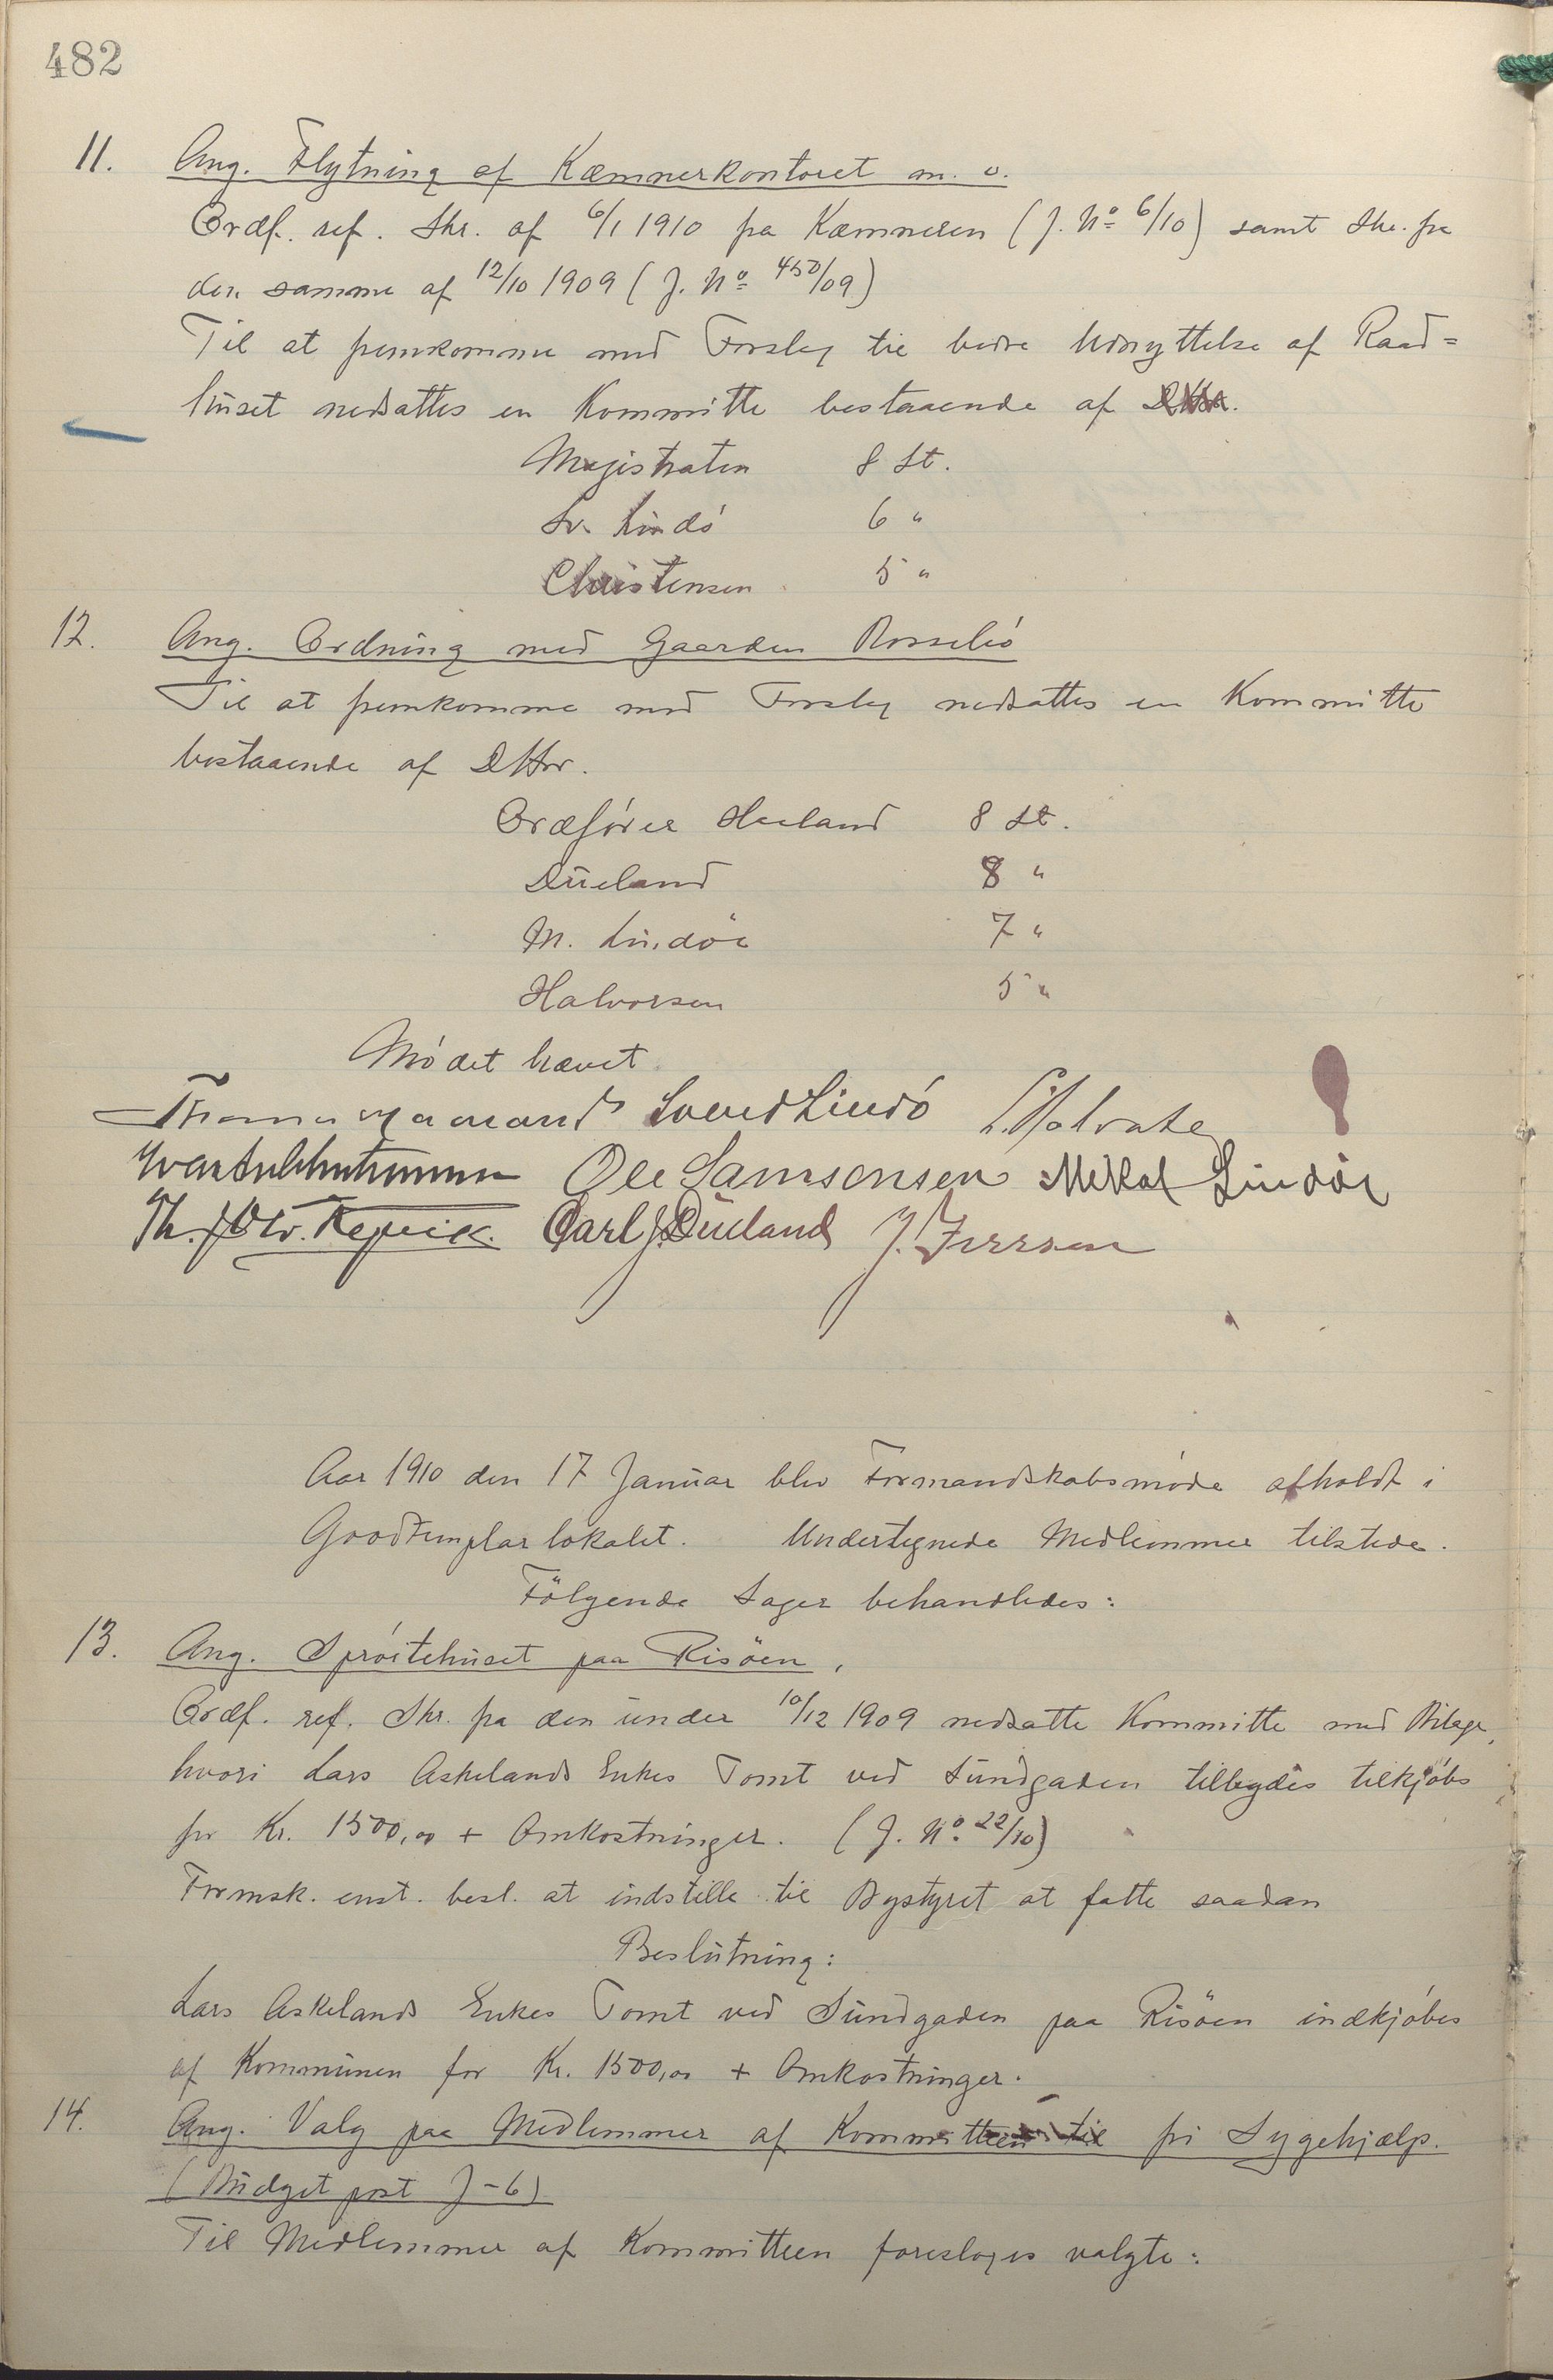 482
11. Ang. Flytning af Kæmnerkontoret m. v.
Ordf. ref. Skr. af 6/1 1910 fra Kæmneren (J. No 6/10) samt Skr. fra
den samme af 12/10 1909 (J. No 450/09)
Til at fremkomme med Forslag til bedre Udnyttelse af Raad=
huset nedsattes en Kommitte bestaaende af
Magistraten 8 St.
Sv. Lindó 6 "
Christensen 5 "
12. Ang. Ordning med Gaarden Rosseló
Til at fremkomme med Forslag nedsattes en Kommitte
bestaaende af DHrr.
Ordfórer Hueland 8 St.
Dueland 8 "
M. Lindöe 7 "
Halvorsen 5 "
Módet hævet
Svend Lindó
Ole Samsonsen Mikal Lindöe
Carl J. Dueland J. Iversen
Aar 1910 den 17 Januar blev Formandskabsmóde afholdt i
Goodtemplarlokalet. Undertegnede Medlemmer tilstede.
Fölgende Sager behandledes:
13. Ang. Spróitehuset paa Risöen,
Ordf. ref. Skr. fra den under 10/12 1909 nedsatte Kommitte med Bilage,
hvori Lars Askelands Enkes Tomt ved Sundgaden tilbydes tilkjóbs
for Kr. 1500,00 + Omkostninger. (J. No. 22/10)
Formsk. enst. besl. at indstille til Bystyret at fatte saadan
Beslutning:
Lars Askelands Enkes Tomt ved Sundgaden paa Risöen indkjóbes
af Kommunen for Kr. 1500,00 + Omkostninger.
14. Ang. Valg paa Medlemmer af Kommitteen til fri Sygehjælp.
(Budget post J-6)
Til Medlemmer af Kommitteen foresloges valgte: